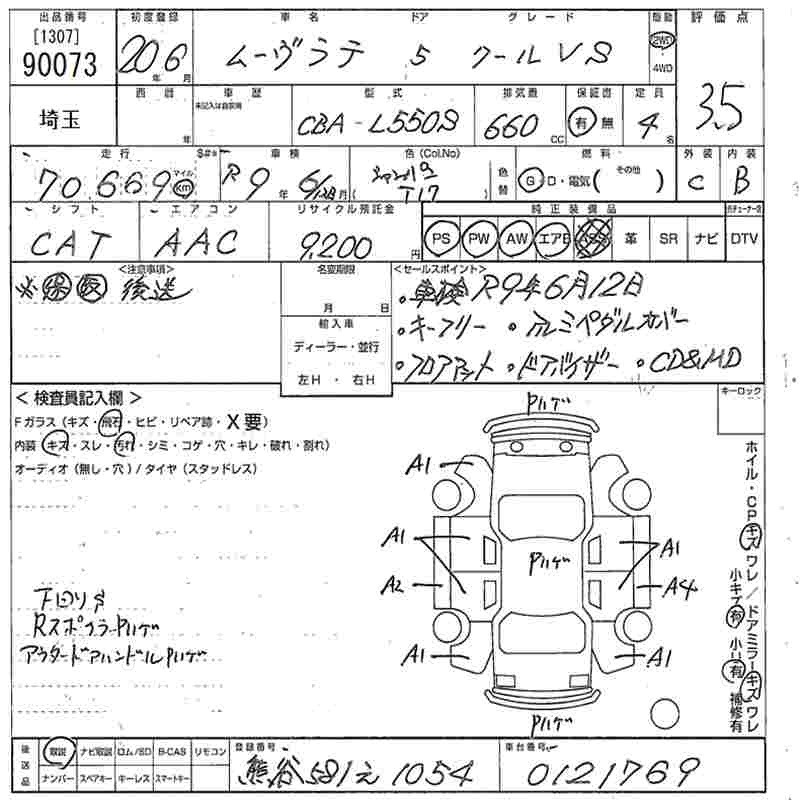 出品番号 初度登録 車名 ドア グレード 駆動 評価点
[1307] 90073 20年6月 ムーヴラテ 5 クールVS 2WD・4WD 3.5
西暦 車歴 型式 排気量 保証書 定員
埼玉 年 未記入は自家用 CBA-L550S 660cc 有 無 4名
走行 $#* 車検 色(Col.No) 燃料 外装 内装
70,669 マイル km R9年6/12月 T17 色替 G・D・電気( その他 ) C B
シフト エアコン リサイクル預託金 純正装備品
CAT AAC 9,200円 PS PW AW エアB 革 SR ナビ DTV
<注意事項> 名変期限 <セールスポイント>
※保 取 後送 月 日 ・車検 R9年6月12日
輸入車 ・キーフリー ・アルミペダルカバー
ディーラー・並行 ・フロアマット ・ドアバイザー ・CD&MD
左H・右H
<検査員記入欄> キーロック
Fガラス(キズ・飛石・ヒビ・リペア跡・X要)
内装(キズ・スレ・汚れ・シミ・コゲ・穴・キレ・破れ・割れ)
オーディオ(無し・穴)/タイヤ(スタッドレス)
Pハゲ
A1
A1 Pハゲ A1
A2 A4
A1 A1
Pハゲ
下回りS
RスポイラーPハゲ
アウタードアハンドルPハゲ
ホイル・CPキズワレ/ドアミラーキズワレ
小キズ有 小凹有 補修有
後送品 取説 ナビ取説 ロム/SD B-CAS リモコン
ナンバー スペアキー キーレス スマートキー
登録番号 熊谷581え1054
車台番号 0121769